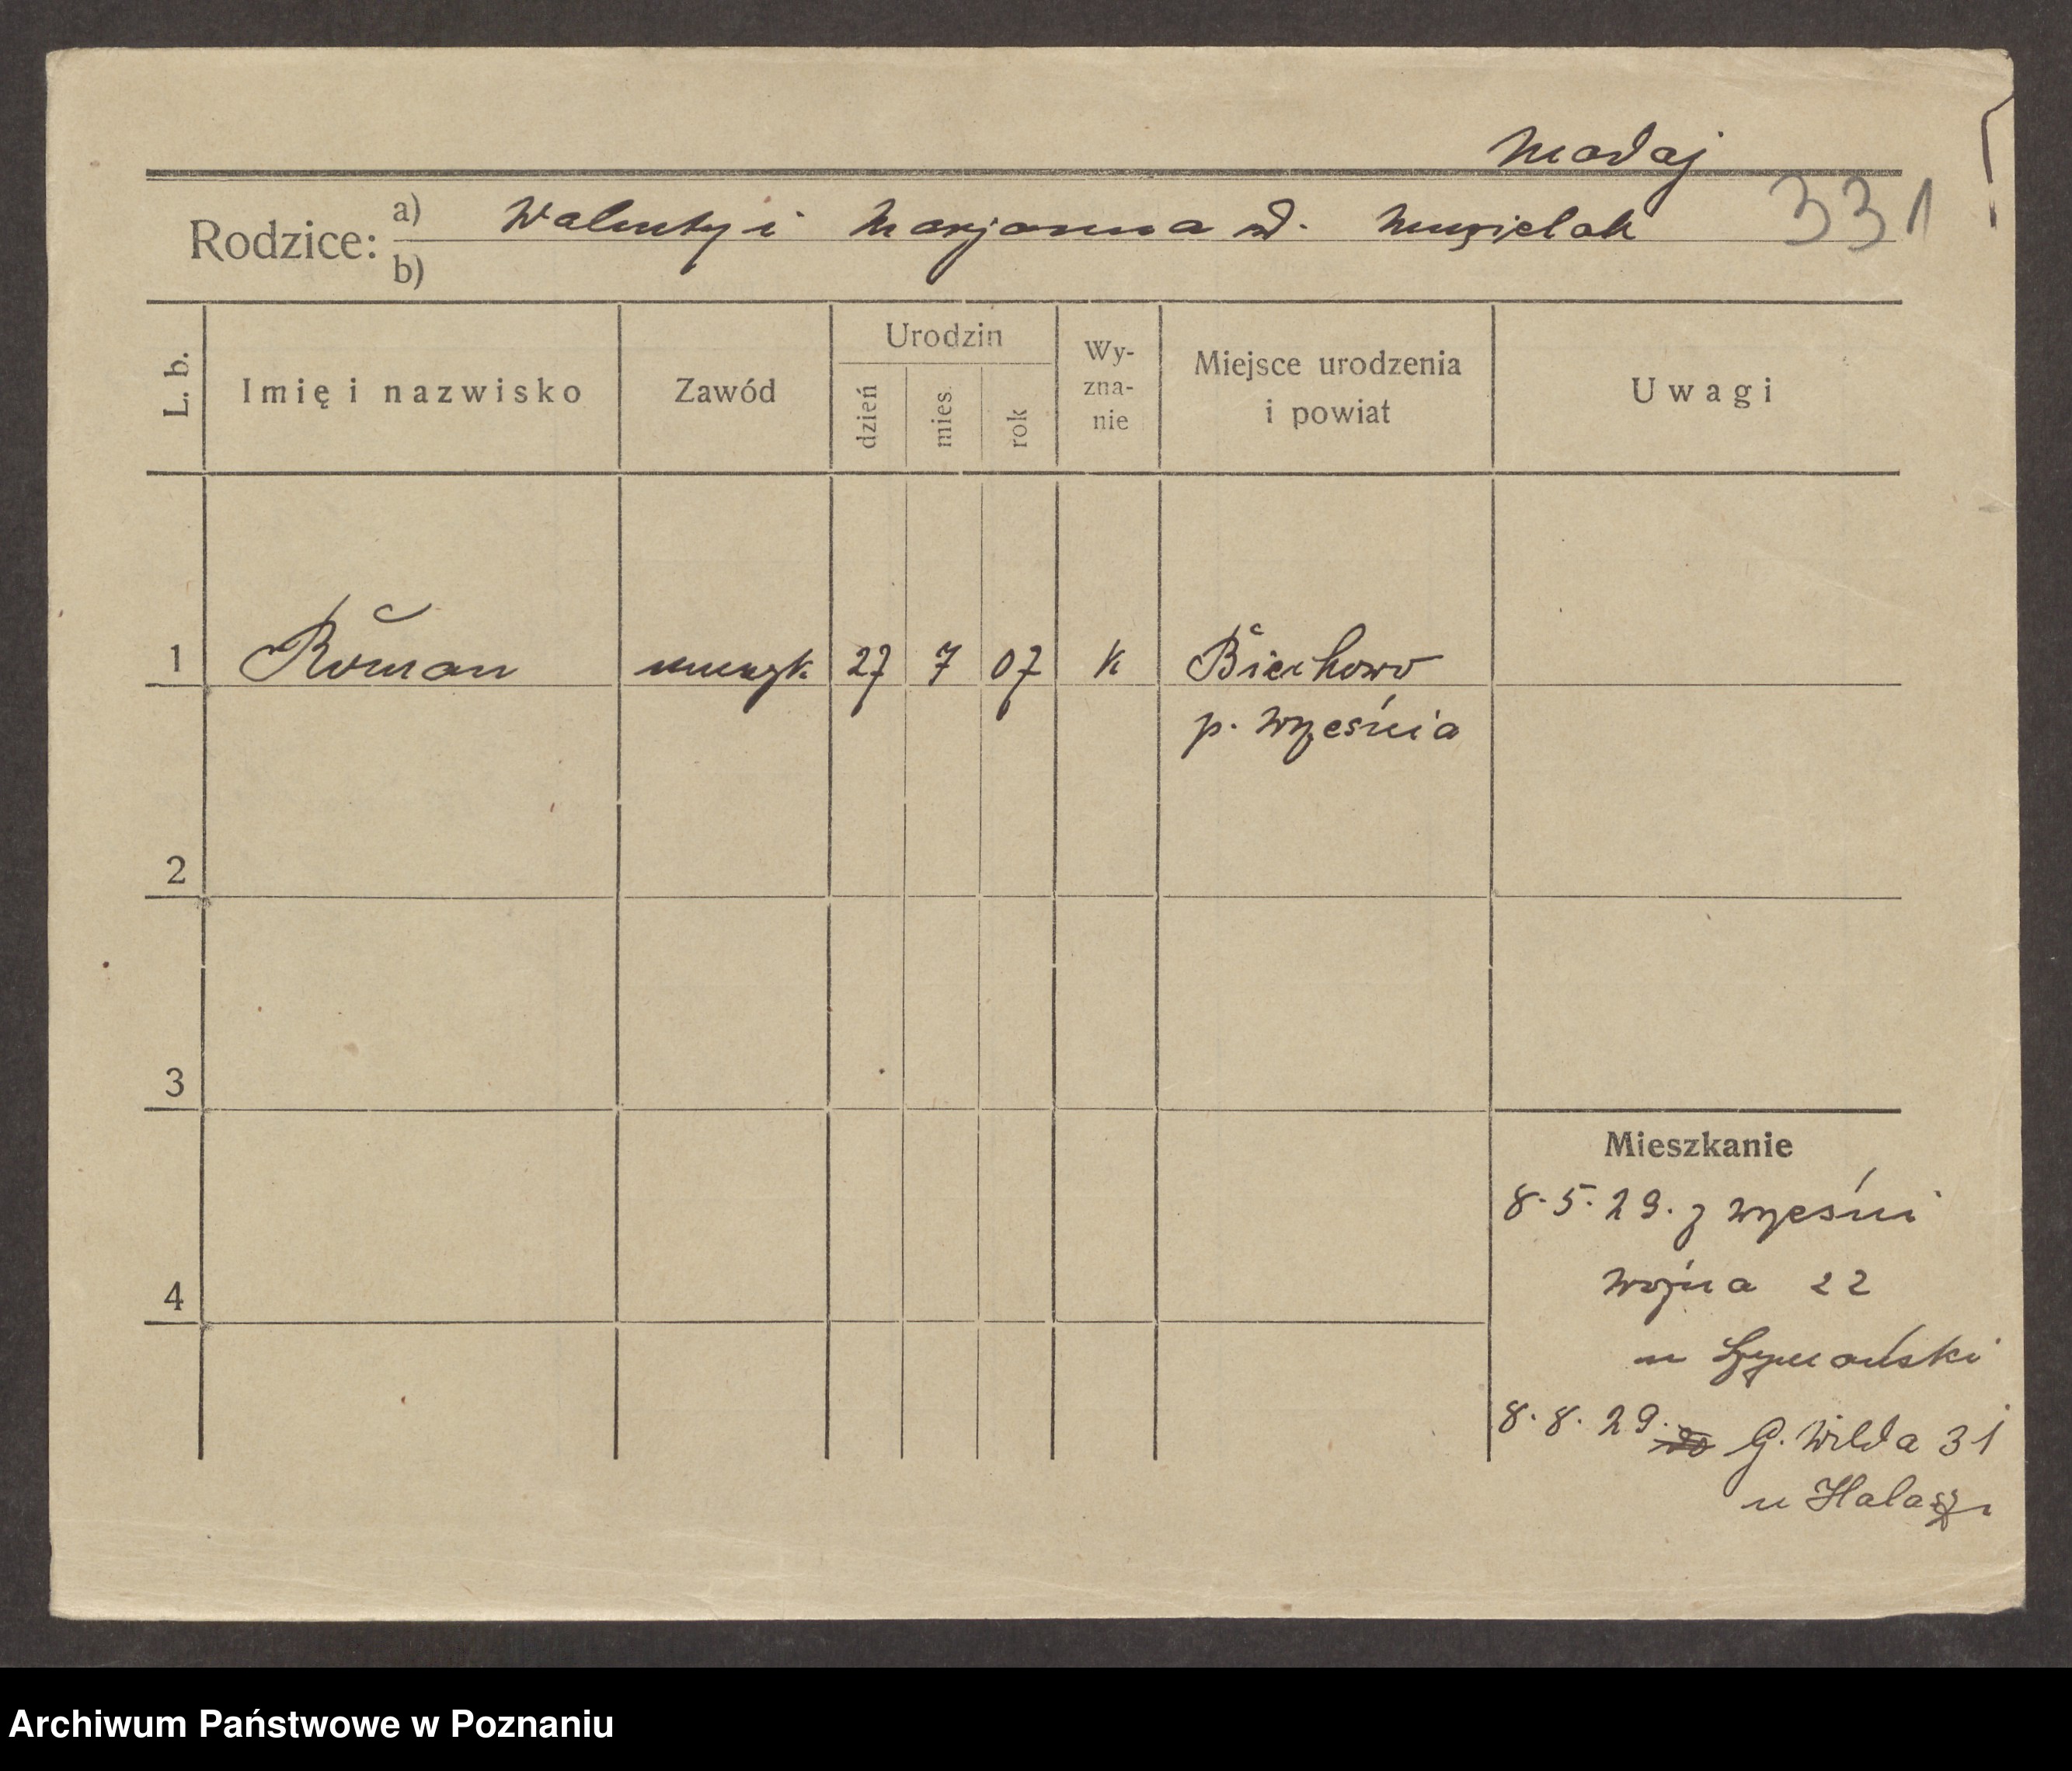 Madaj
331
Rodzice: a) Walenty i Marjanna d. Musielak
b)
L. b. Imię i nazwisko Zawód Urodzin dzień mies. rok Wy-zna-nie Miejsce urodzenia i powiat Uwagi
1 Roman muzyk 27 7 07 K Biechowo
p. Września
2
3
4
Mieszkanie
8.5.29. z Wrześni
22
u Szymański
8.8.29. G. Wilda 31
u
Archiwum Państwowe w Poznaniu